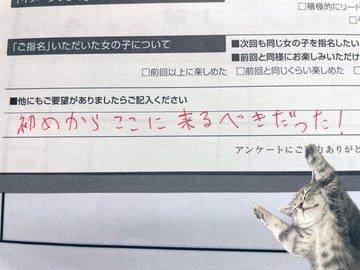 □積極的にリード
「ご指名」いただいた女の子について
■次回も同じ女の子を指名したい
■前回と同様にお楽しみいただけ
□前回以上に楽しめた □前回と同じくらい楽しめた
■他にもご要望がありましたらご記入ください
初めからここに来るべきだった!
アンケートにご協力ありがと